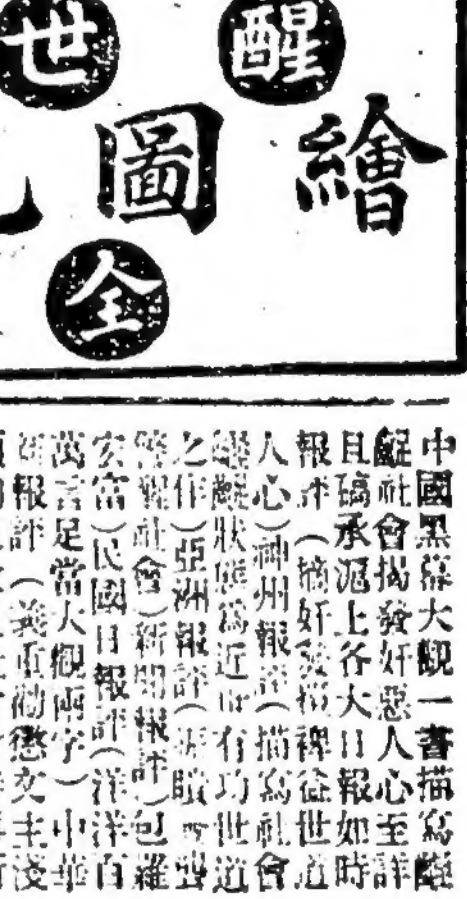 醒世
繪圖
全
中國黑幕大觀一書描寫
齪社會揭發奸惡人心至詳
且承滬上各大日報如時
報評(摘奸發裨益世道
人心)神州報評(描寫社會
狀態為近有功世道
之作)亞洲報評(
社會)新聞報評(包羅
宏富)民國日報評(洋洋百
萬言足當大觀兩字)中華
報評(義重懲文主淺